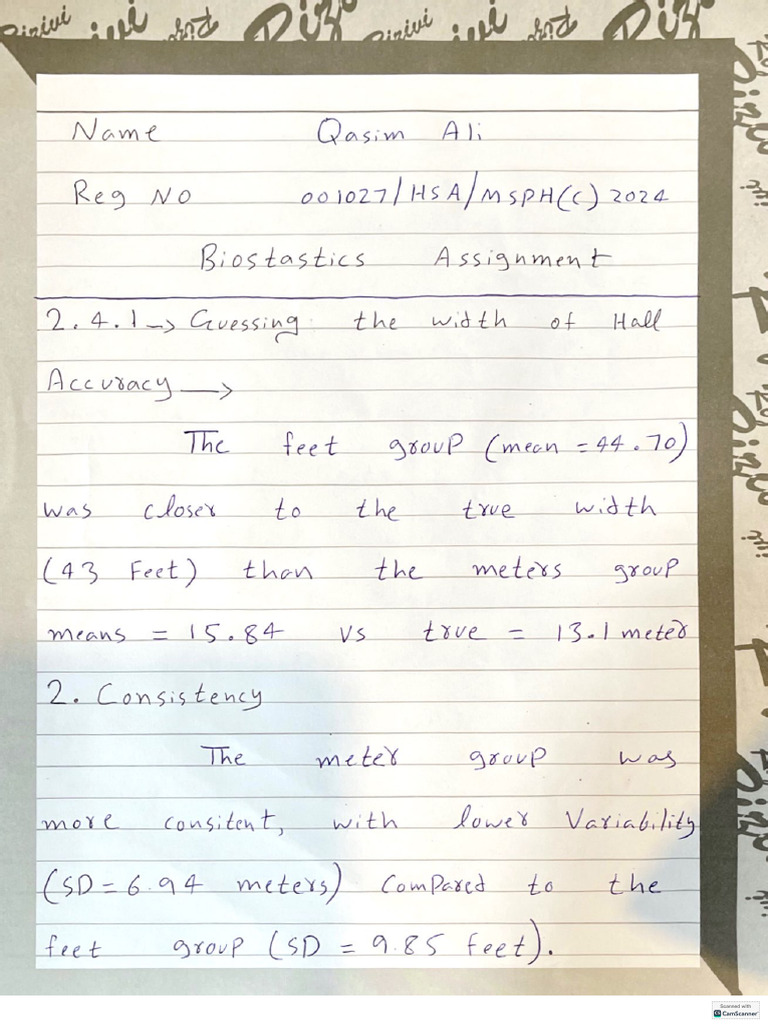 Name Qasim Ali
Reg NO 001027/HSA/MSPH(C) 2024
Biostastics Assignment
2.4.1 → Guessing the width of Hall
Accuracy →
The feet group (mean = 44.70)
was closer to the true width
(43 Feet) than the meters group
means = 15.84 vs true = 13.1 meter
2. Consistency
The meter group was
more consitent, with lower Variability
(SD = 6.94 meters) Compared to the
feet group (SD = 9.85 feet).
Scanned with
CS CamScanner